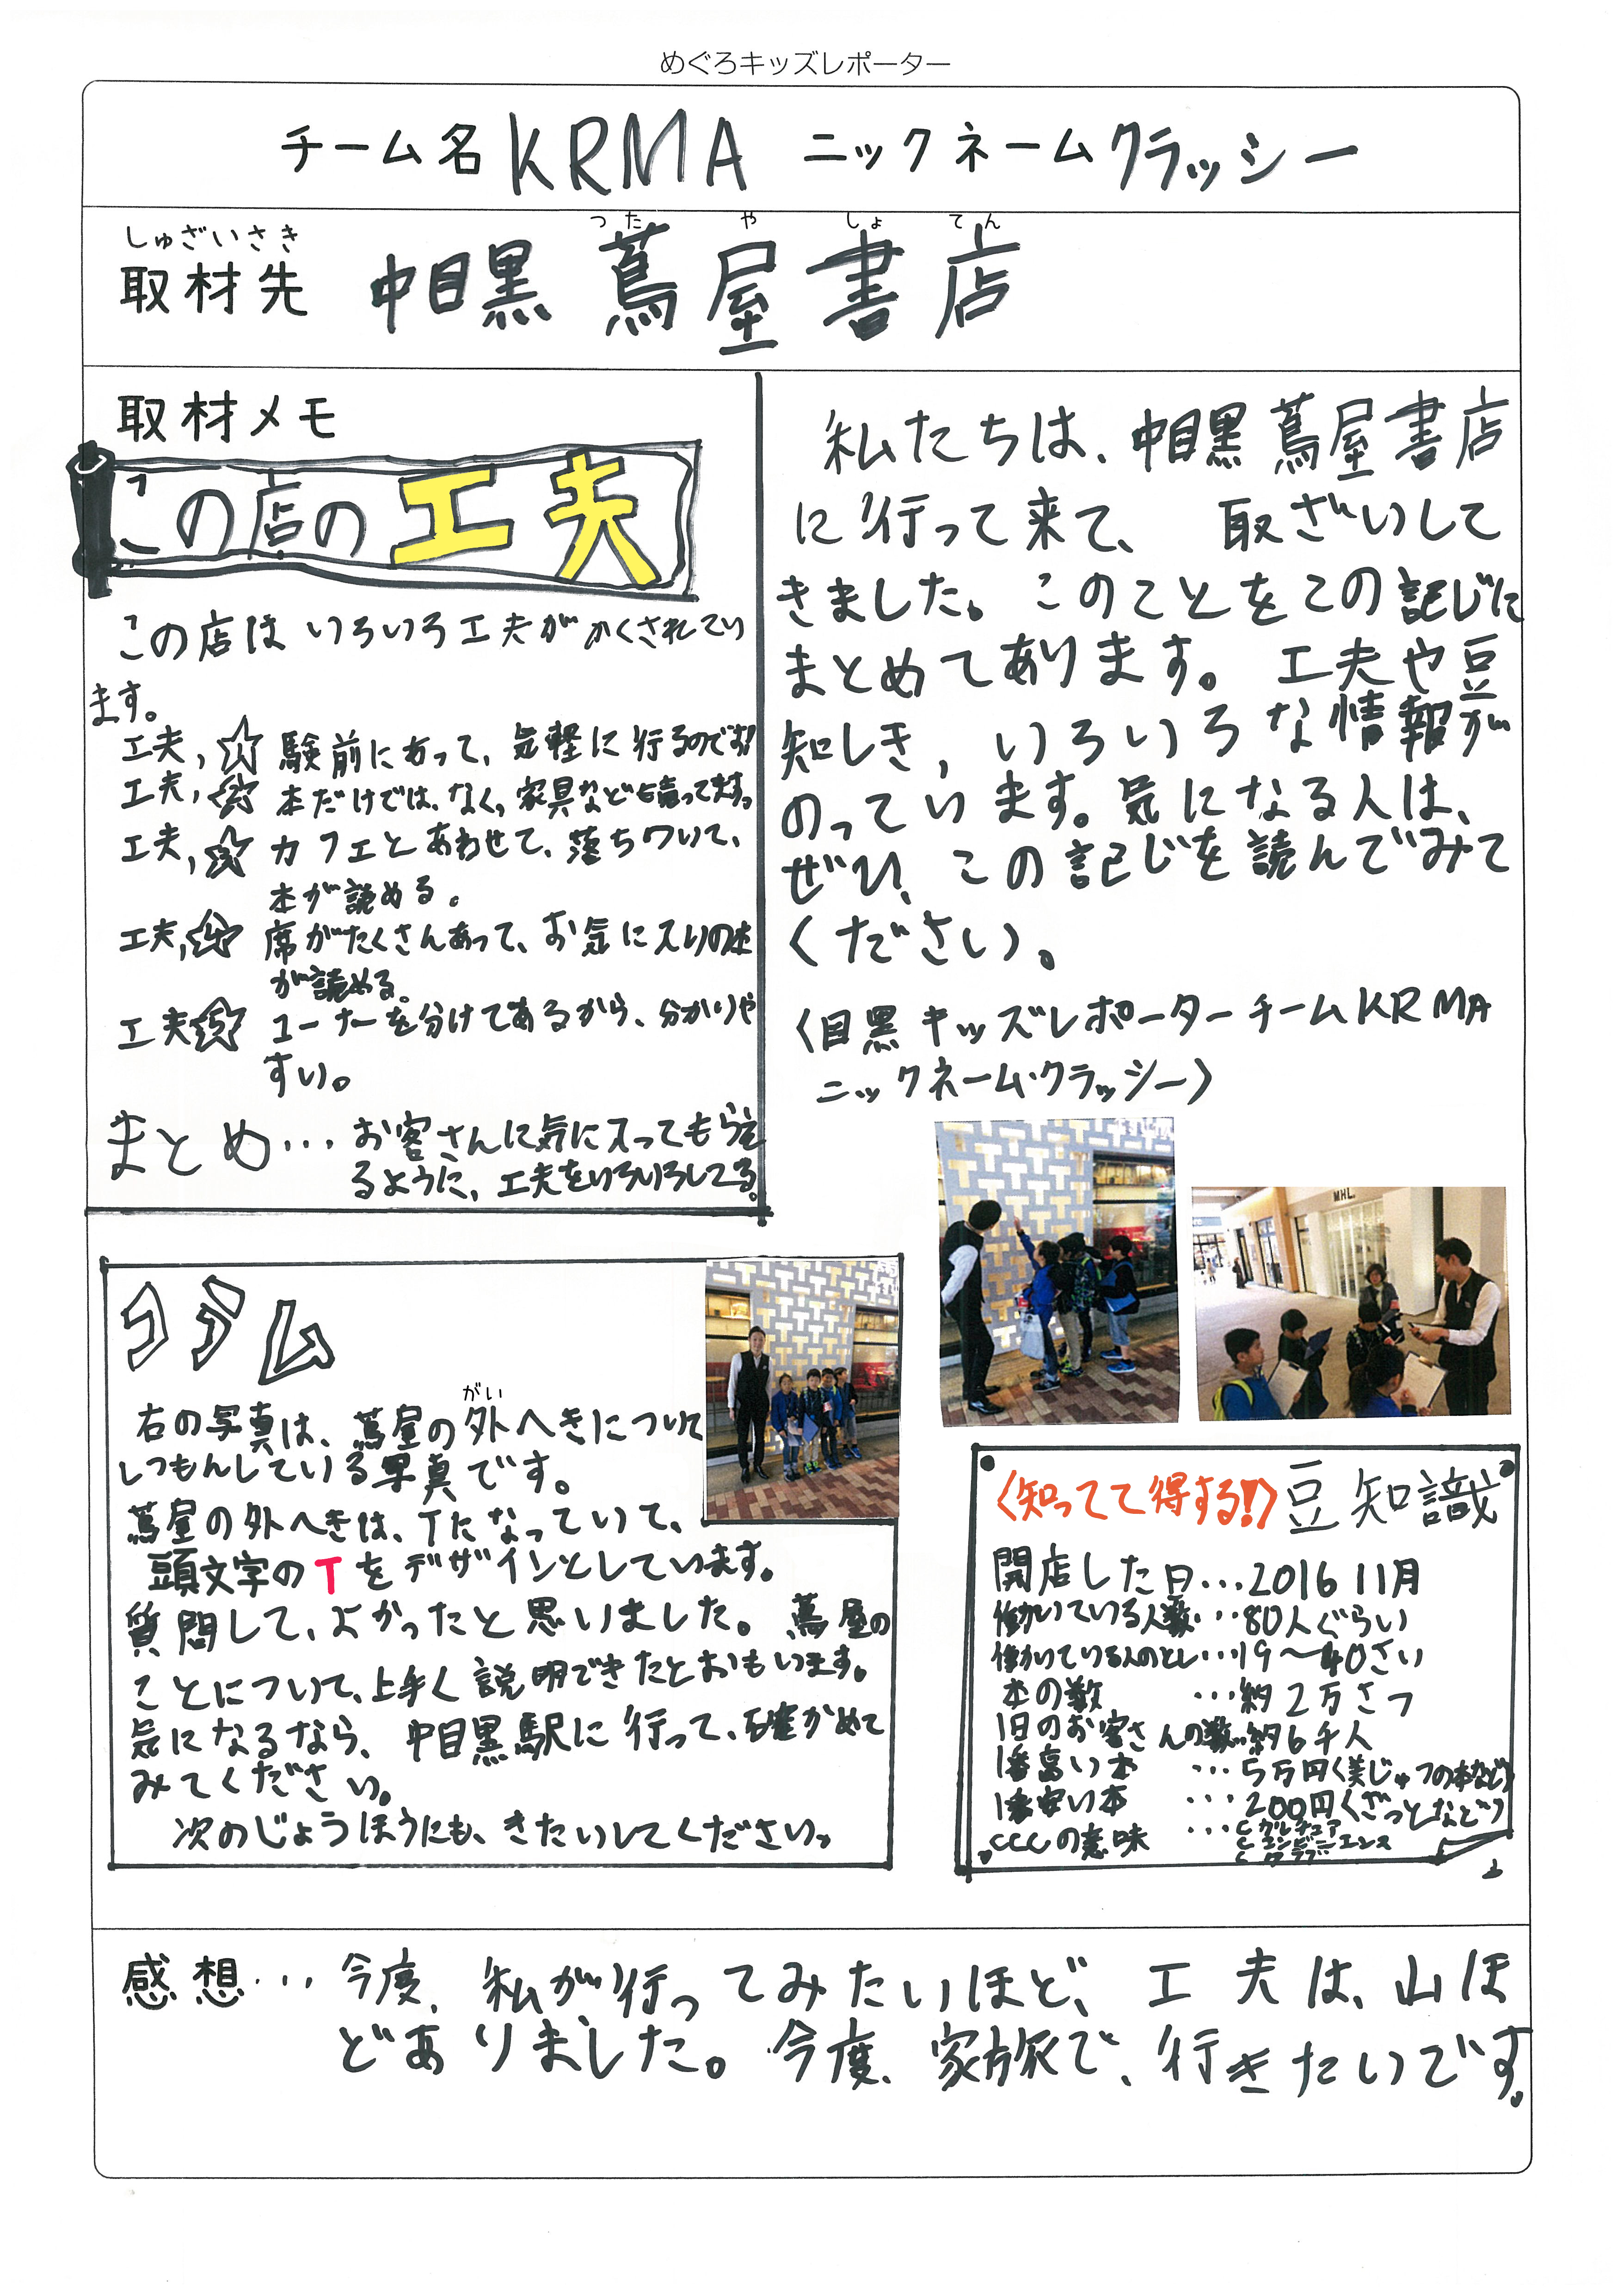 めぐろキッズレポーター
チーム名 KRMA ニックネーム クラッシー
しゅざいさき
取材先
つたやしょてん
中目黒 蔦屋書店
取材メモ
この店の工夫
この店はいろいろ工夫がかくされてい
ます。
工夫,☆1 験前にあって、気軽に行るのです!
工夫,☆2 本だけでは、なく、家具なども売ってます。
工夫,☆3 カフェとあわせて、落ちついて、
本が読める。
工夫,☆4 席がたくさんあって、お気に入りの本
が読める。
工夫☆5 コーナーを分けてあるから、分かりや
すい。
まとめ… お客さんに気に入ってもらえ
るように、工夫をいろいろしてる。
私たちは、中目黒蔦屋書店
に行って来て、 取ざいして
きました。このことをこの記じに
まとめてあります。工夫や豆
知しき,いろいろな情報が
のっています。気になる人は、
ぜひ、この記じを読んでみて
ください。
〈目黒キッズレポーターチームKRMA
ニックネーム・クラッシー〉
MHL.
コラム
がい
右の写真は、蔦屋の外へきについて
しつもんしている写真です。
蔦屋の外へきは、Tになっていて、
頭文字のTをデザインとしています。
質問して、よかったと思いました。蔦屋の
ことについて、上手く説明できたとおもいます。
気になるなら、中目黒駅に行って、確かめて
みてください。
次のじょうほうにも、きたいしてください。
〈知ってて得する!!〉豆知識
開店した日…2016 11月
働いている人数…80人ぐらい
働いている人のとし…19〜40さい
本の数 …約2万さつ
1日のお客さんの数…約6千人
1番高い本 …5万円〈美じゅつの本など〉
1番安い本 …200円〈ざっしなど〉
CCCの意味 …C カルチュア
C コンビニエンス
C クラブ
感想… 今度、私が行ってみたいほど、工夫は、山ほ
どありました。今度、家族で、行きたいです。